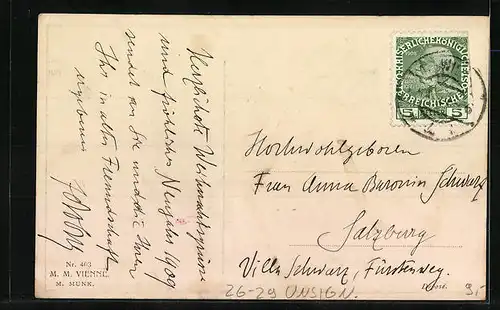 Herzlichste Weihnachtsgrüsse
und fröhliches Neujahr 1909
sendet an Sie und die Ihren
Ihr in alter Freundschaft
ergebener
Nr. 463
M. M. VIENNE.
M. MUNK.
5 5
Hochwohlgeboren
Frau Anna Baronin Schwarz
Salzburg
Villa Schwarz, Fürstenweg.
26-29 UNSIGN.
9.-